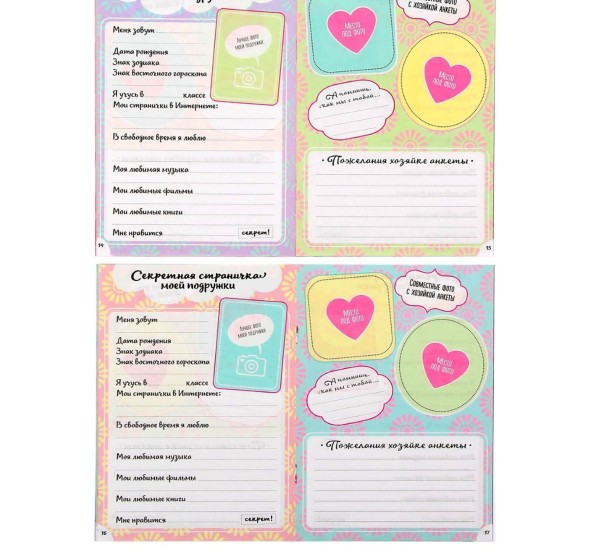 Меня зовут
Дата рождения
Знак зодиака
Знак восточного гороскопа
Я учусь в классе
Мои странички в Интернете:
В свободное время я люблю
Моя любимая музыка
Мои любимые фильмы
Мои любимые книги
Мне нравится
секрет!
14
Лучшее фото
моей подружки
Место
под фото
Совместные фото
с хозяйкой анкеты
Место
под фото
А помнишь,
как мы с тобой...
· Пожелания хозяйке анкеты ·
15
Секретная страничка
моей подружки
Меня зовут
Дата рождения
Знак зодиака
Знак восточного гороскопа
Я учусь в классе
Мои странички в Интернете:
В свободное время я люблю
Моя любимая музыка
Мои любимые фильмы
Мои любимые книги
Мне нравится
секрет!
16
Лучшее фото
моей подружки
Место
под фото
Совместные фото
с хозяйкой анкеты
Место
под фото
А помнишь,
как мы с тобой...
· Пожелания хозяйке анкеты ·
17